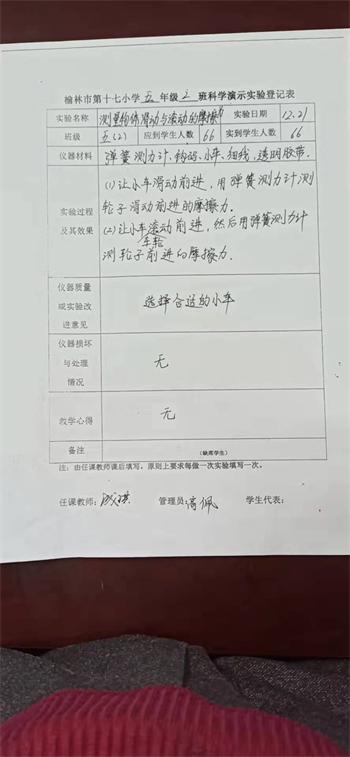 榆林市第十七小学五年级2班科学演示实验登记表
实验名称 测量物体滑动与滚动的摩擦力 实验日期 12.21
班级 五(2) 应到学生人数 66 实到学生人数 66
仪器材料 弹簧测力计、钩码、小车、细线、透明胶带.
实验过程及其效果
(1)让小车滑动前进,用弹簧测力计测
轮子滑动前进的摩擦力.
(2)让小车车轮滚动前进,然后用弹簧测力计
测轮子前进的摩擦力.
仪器质量或实验改进意见 选择合适的小车
仪器损坏与处理情况 无
教学心得 无
备注 (缺席学生)
注:由任课教师课后填写,原则上要求每做一次实验填写一次。
任课教师: 管理员:高佩 学生代表: